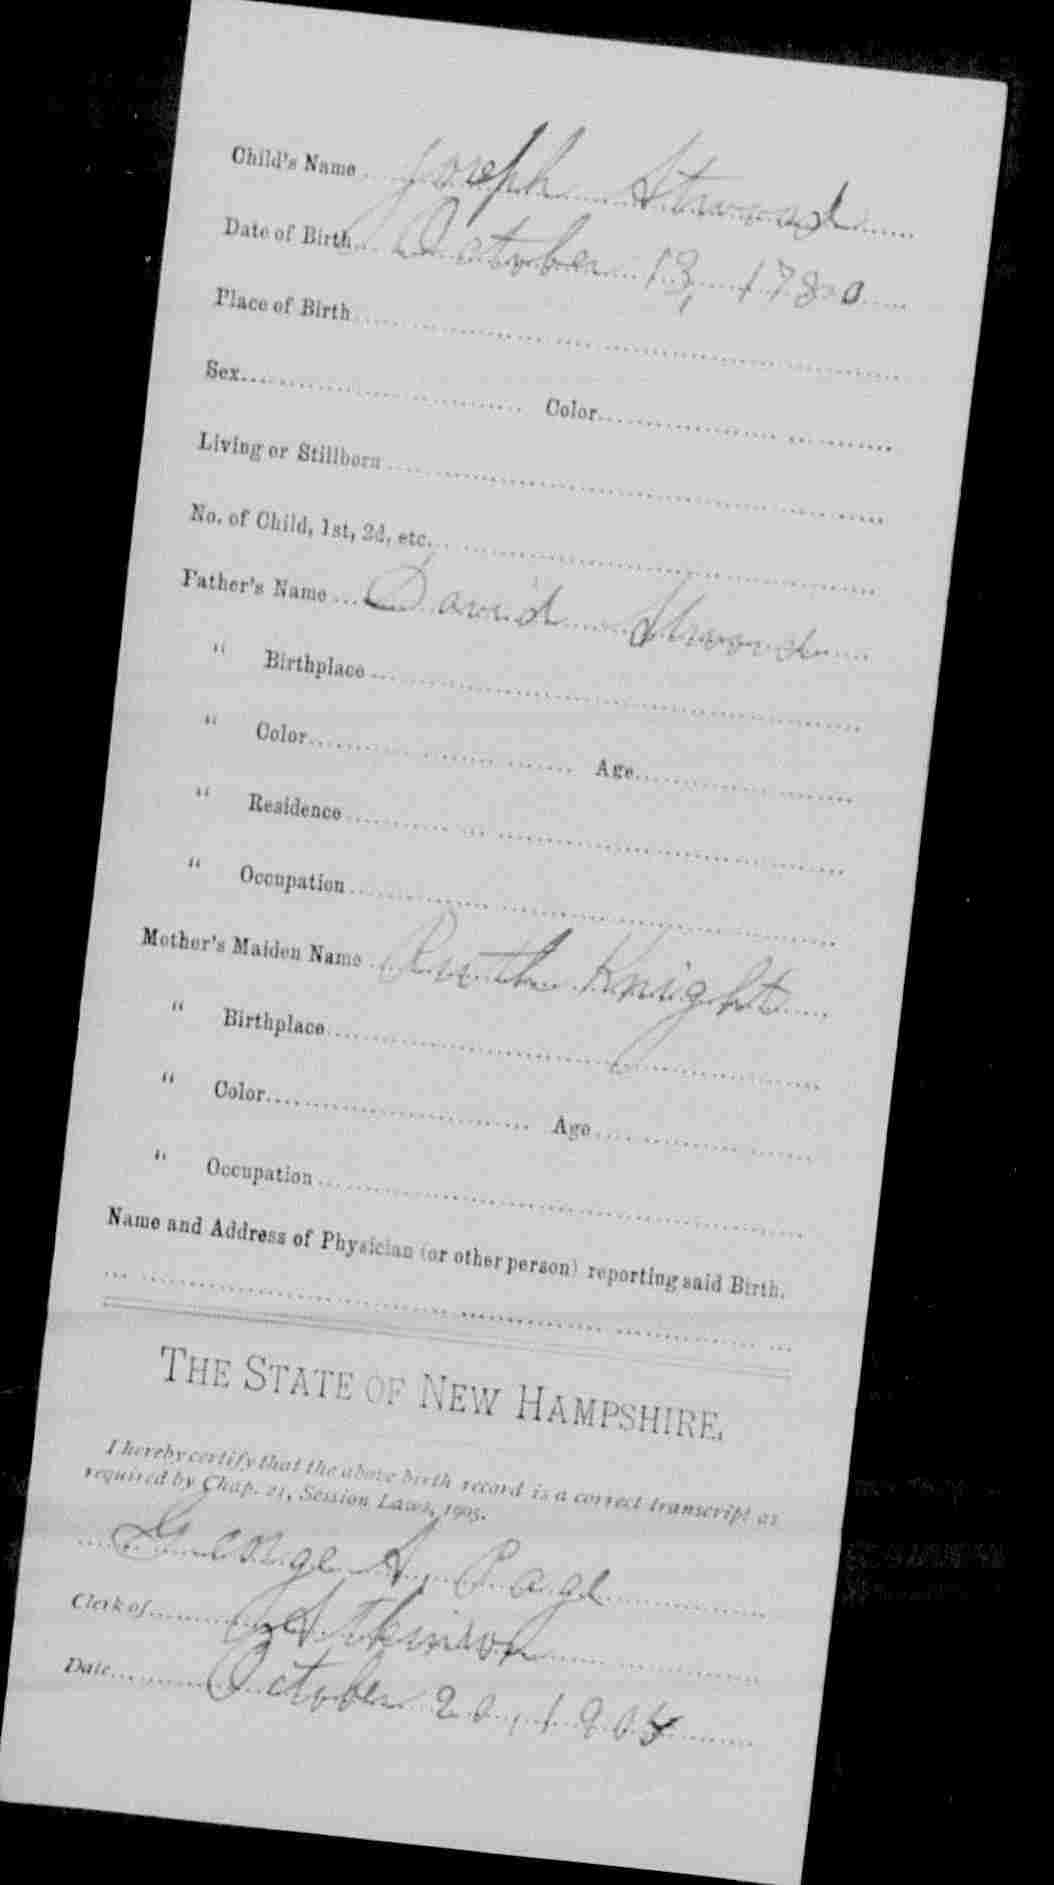 Child's Name Joseph Atwood
Date of Birth October 13, 1780
Place of Birth
Sex Color
Living or Stillborn
No. of Child, 1st, 2d, etc.
Father's Name David Atwood
" Birthplace
" Color Age
" Residence
" Occupation
Mother's Maiden Name Ruth Knight
" Birthplace
" Color Age
" Occupation
Name and Address of Physician (or other person) reporting said Birth.
THE STATE OF NEW HAMPSHIRE.
I hereby certify that the above birth record is a correct transcript as
required by Chap. 21, Session Laws, 1905.
George A. Page
Clerk of Atkinson
Date October 20, 1905